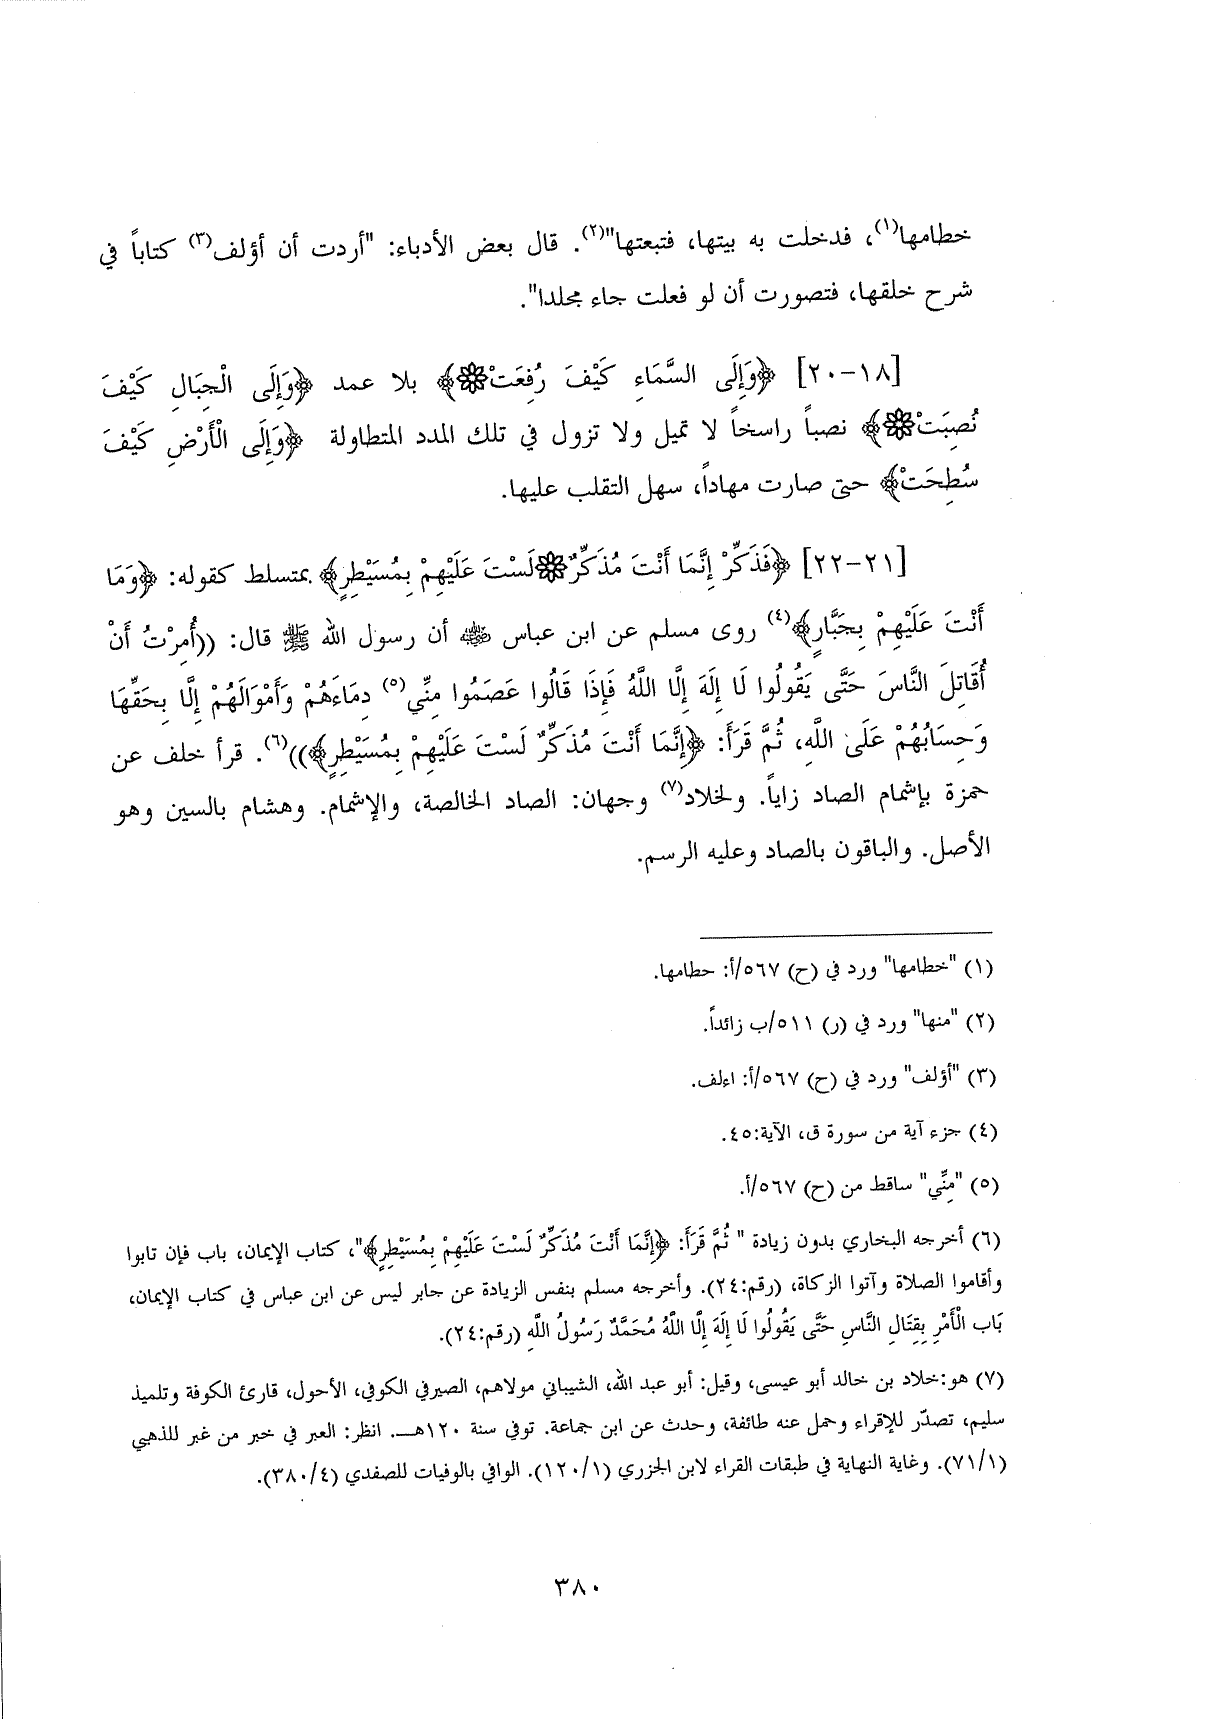 خطامها(١)، فدخلت به بيتها، فتبعتها"(٢). قال بعض الأدباء: "أردت أن أؤلف(٣) كتاباً في
شرح خلقها، فتصورت أن لو فعلت جاء مجلدا".
[١٨-٢٠] ﴿وَإِلَى السَّمَاءِ كَيْفَ رُفِعَتْ۞﴾ بلا عمد ﴿وَإِلَى الْجِبَالِ كَيْفَ
نُصِبَتْ۞﴾ نصباً راسخاً لا تميل ولا تزول في تلك المدد المتطاولة ﴿وَإِلَى الْأَرْضِ كَيْفَ
سُطِحَتْ﴾ حتى صارت مهاداً، سهل التقلب عليها.
[٢١-٢٢] ﴿فَذَكِّرْ إِنَّمَا أَنْتَ مُذَكِّرٌ۞لَسْتَ عَلَيْهِمْ بِمُسَيْطِرٍ﴾ بمتسلط كقوله: ﴿وَمَا
أَنْتَ عَلَيْهِمْ بِجَبَّارٍ﴾(٤) روى مسلم عن ابن عباس ﵁ أن رسول الله ﷺ قال: ((أُمِرْتُ أَنْ
أُقَاتِلَ النَّاسَ حَتَّى يَقُولُوا لَا إِلَهَ إِلَّا اللَّهُ فَإِذَا قَالُوا عَصَمُوا مِنِّي(٥) دِمَاءَهُمْ وَأَمْوَالَهُمْ إِلَّا بِحَقِّهَا
وَحِسَابُهُمْ عَلَى اللَّهِ، ثُمَّ قَرَأَ: ﴿إِنَّمَا أَنْتَ مُذَكِّرٌ لَسْتَ عَلَيْهِمْ بِمُسَيْطِرٍ﴾))(٦). قرأ خلف عن
حمزة بإشمام الصاد زاياً. ولخلاد(٧) وجهان: الصاد الخالصة، والإشمام. وهشام بالسين وهو
الأصل. والباقون بالصاد وعليه الرسم.
(١) "خطامها" ورد في (ح) ٥٦٧/أ: حطامها.
(٢) "منها" ورد في (ر) ٥١١/ب زائداً.
(٣) "أؤلف" ورد في (ح) ٥٦٧/أ: اءلف.
(٤) جزء آية من سورة ق، الآية:٤٥.
(٥) "مِنِّي" ساقط من (ح) ٥٦٧/أ.
(٦) أخرجه البخاري بدون زيادة " ثُمَّ قَرَأَ: ﴿إِنَّمَا أَنْتَ مُذَكِّرٌ لَسْتَ عَلَيْهِمْ بِمُسَيْطِرٍ﴾"، كتاب الإيمان، باب فإن تابوا
وأقاموا الصلاة وآتوا الزكاة، (رقم:٢٤). وأخرجه مسلم بنفس الزيادة عن جابر ليس عن ابن عباس في كتاب الإيمان،
بَاب الْأَمْرِ بِقِتَالِ النَّاسِ حَتَّى يَقُولُوا لَا إِلَهَ إِلَّا اللَّهُ مُحَمَّدٌ رَسُولُ اللَّهِ (رقم:٢٤).
(٧) هو:خلاد بن خالد أبو عيسى، وقيل: أبو عبد الله، الشيباني مولاهم، الصيرفي الكوفي، الأحول، قارئ الكوفة وتلميذ
سليم، تصدّر للإقراء وحمل عنه طائفة، وحدث عن ابن جماعة. توفي سنة ١٢٠هـ. انظر: العبر في خبر من غبر للذهبي
(٧١/١). وغاية النهاية في طبقات القراء لابن الجزري (١٢٠/١). الوافي بالوفيات للصفدي (٣٨٠/٤).
٣٨٠